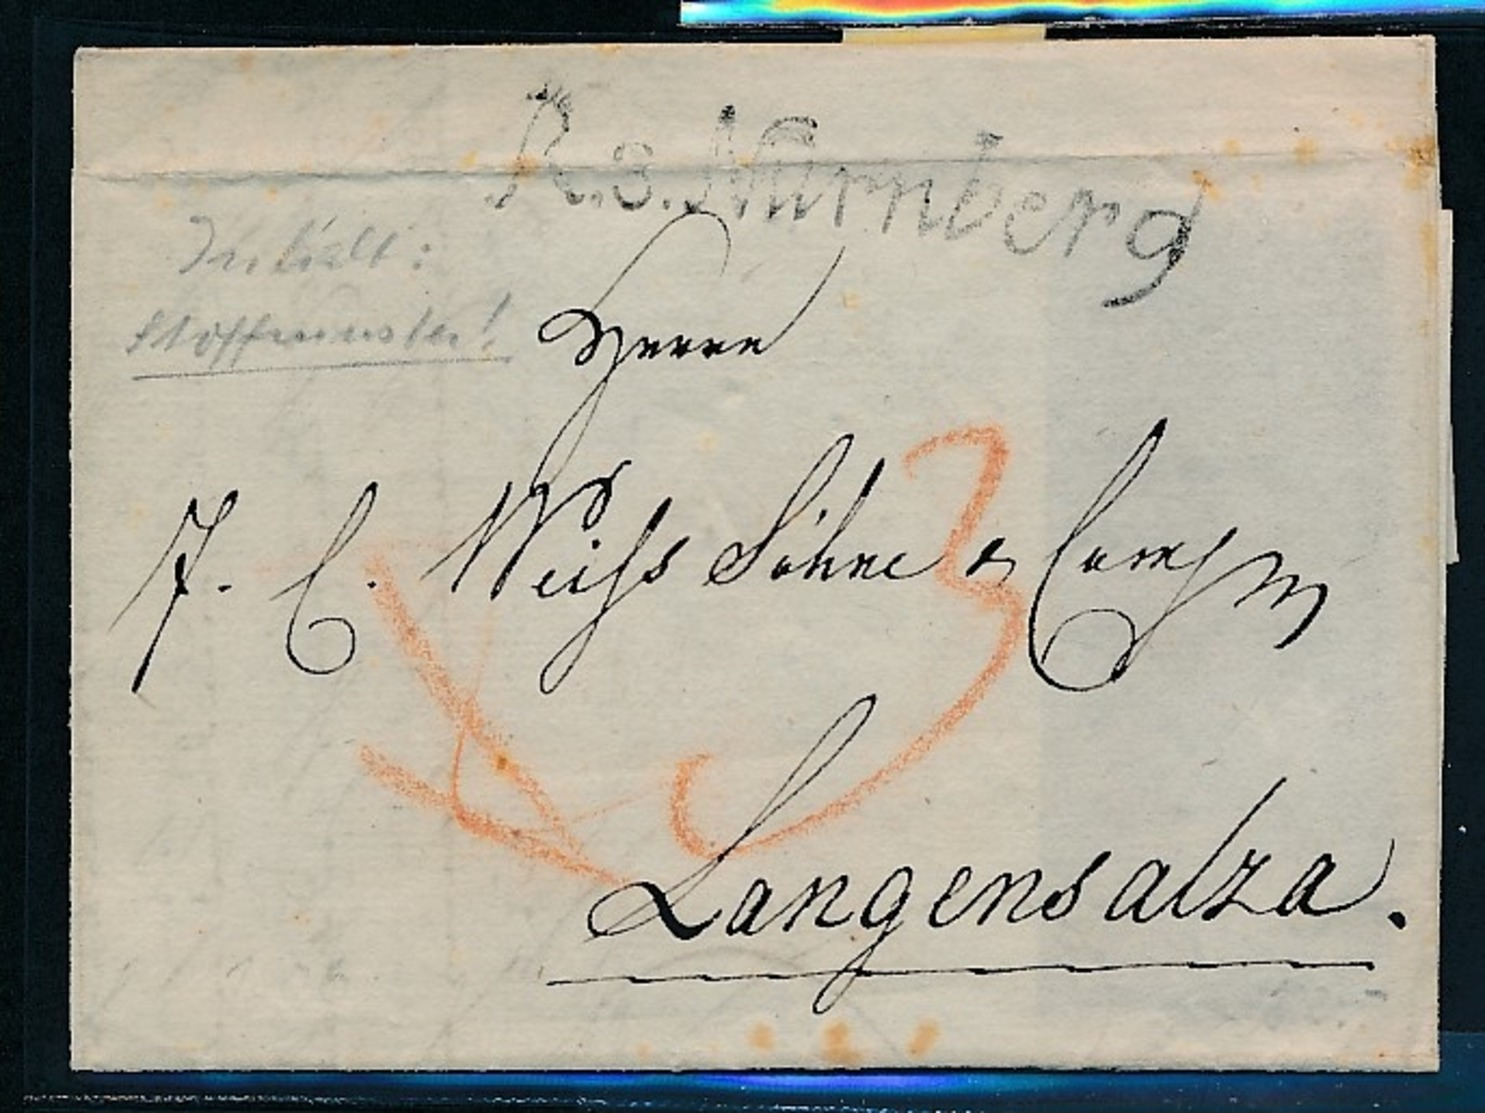 R.3.Nürnberg
Inhalt:
Stoffmuster!
Herrn
J. C. Weiſs Söhne & Comp
3
Langensalza.